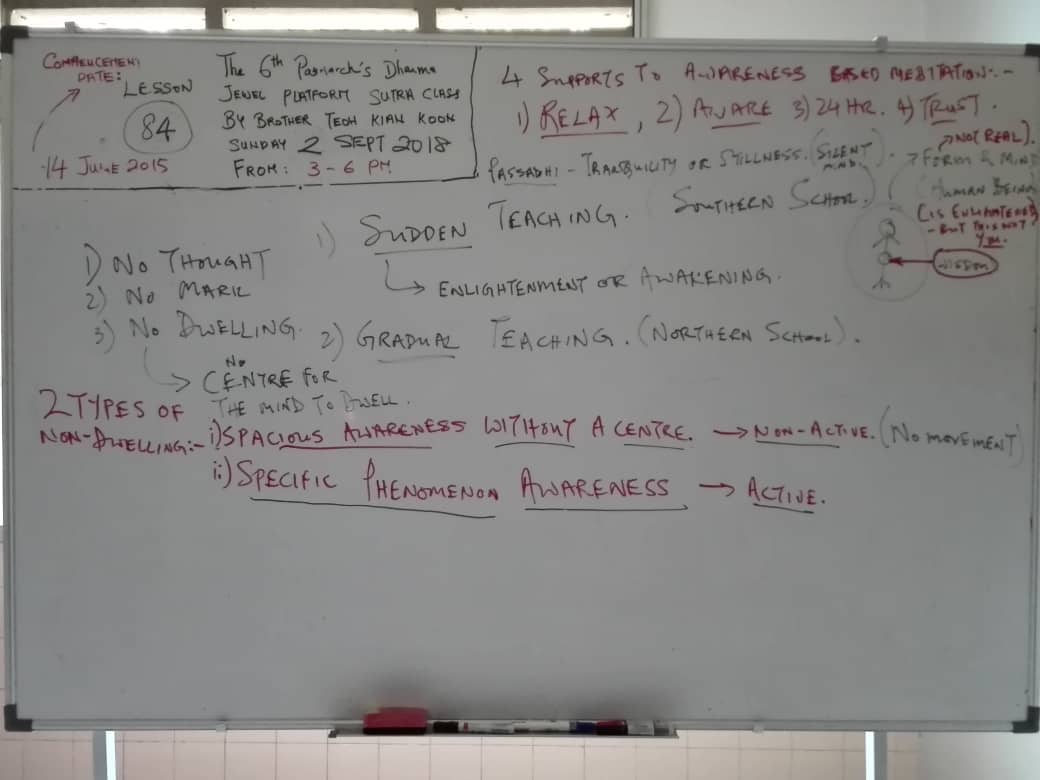 COMMENCEMENT
DATE:
LESSON
84
14 JUNE 2015
The 6th Patriarch's Dharma
JEWEL PLATFORM SUTRA CLASS
BY BROTHER TEOH KIAN KOON
SUNDAY 2 SEPT 2018
FROM: 3 - 6 PM
4 SUPPORTS TO AWARENESS BASED MEDITATION:-
1) RELAX, 2) AWARE 3) 24 HR. 4) TRUST.
PASSADHI - TRANQUILITY OR STILLNESS. (SILENT MIND).
→ NOT REAL).
→ FORM & MIND
(HUMAN BEING)
(IS ENLIGHTENED)
- BUT THIS IS NOT
YOU.
WISDOM
1) SUDDEN TEACHING. (SOUTHERN SCHOOL.)
→ ENLIGHTENMENT OR AWAKENING.
1) NO THOUGHT
2) NO MARK
3) NO DWELLING.
2) GRADUAL TEACHING. (NORTHERN SCHOOL).
→ NO CENTRE FOR
THE MIND TO DWELL.
2 TYPES OF
NON-DWELLING:-
i) SPACIOUS AWARENESS WITHOUT A CENTRE. → NON-ACTIVE. (NO MOVEMENT)
ii) SPECIFIC PHENOMENON AWARENESS → ACTIVE.